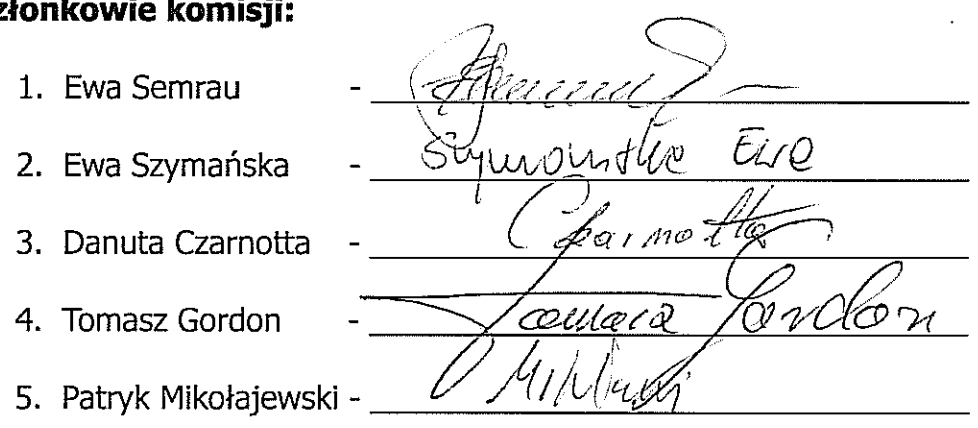 złonkowie komisji:
1. Ewa Semrau -
2. Ewa Szymańska - Szymańska Ewa
3. Danuta Czarnotta - Czarnotta
4. Tomasz Gordon - Tomasz Gordon
5. Patryk Mikołajewski -